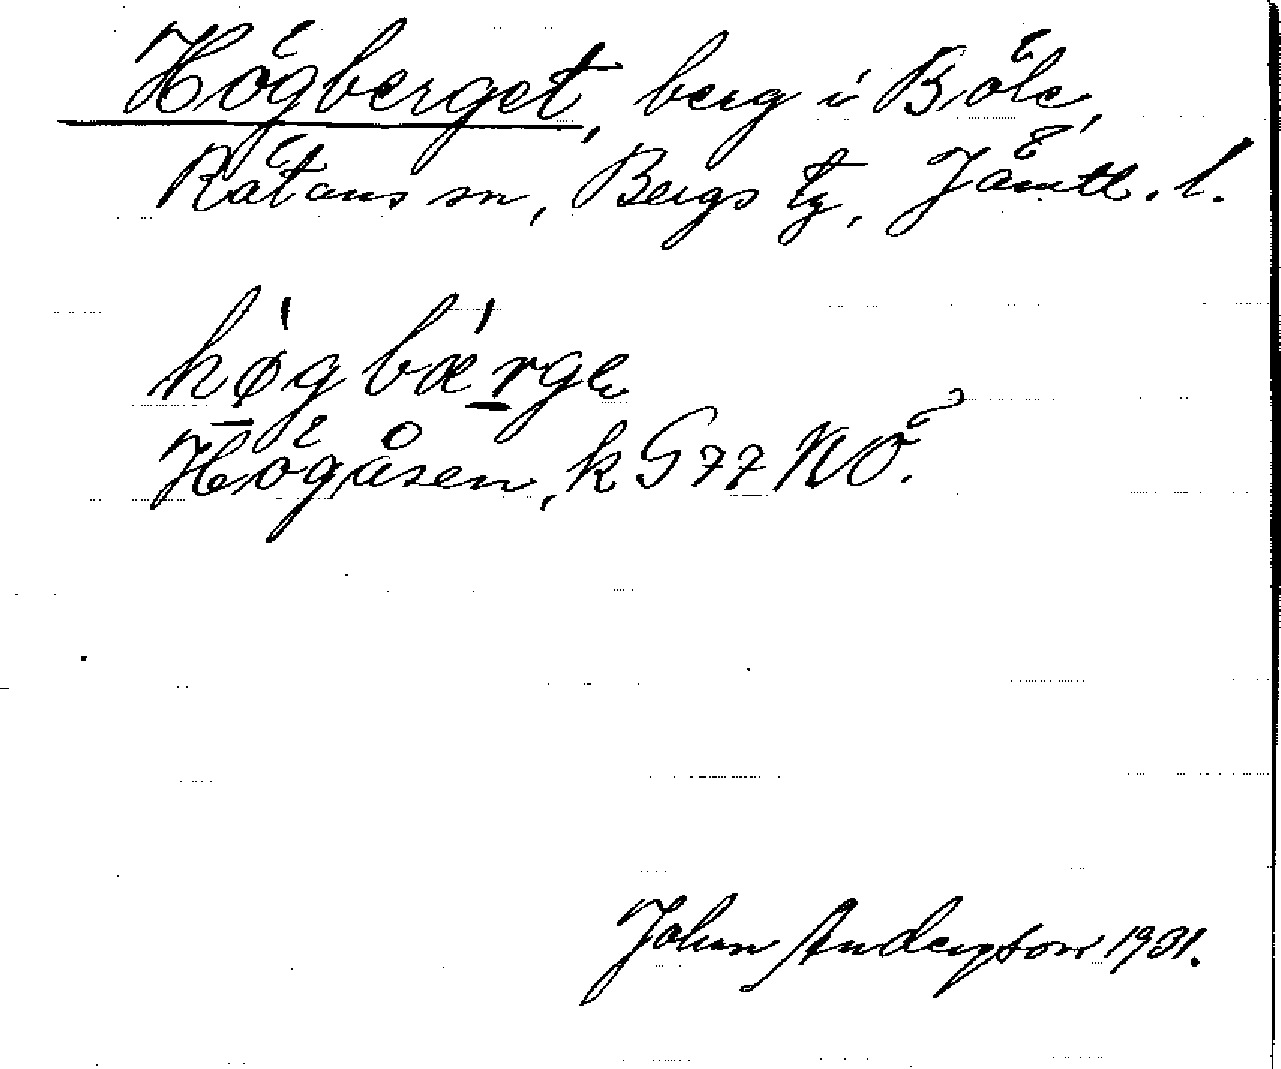 Högberget, berg i Böle,
Rätans sn, Bergs tg, Jämtl. l.
hø̱gbæ̱rge
Högåsen, k G 77 NÖ.
John Andersson 1931.